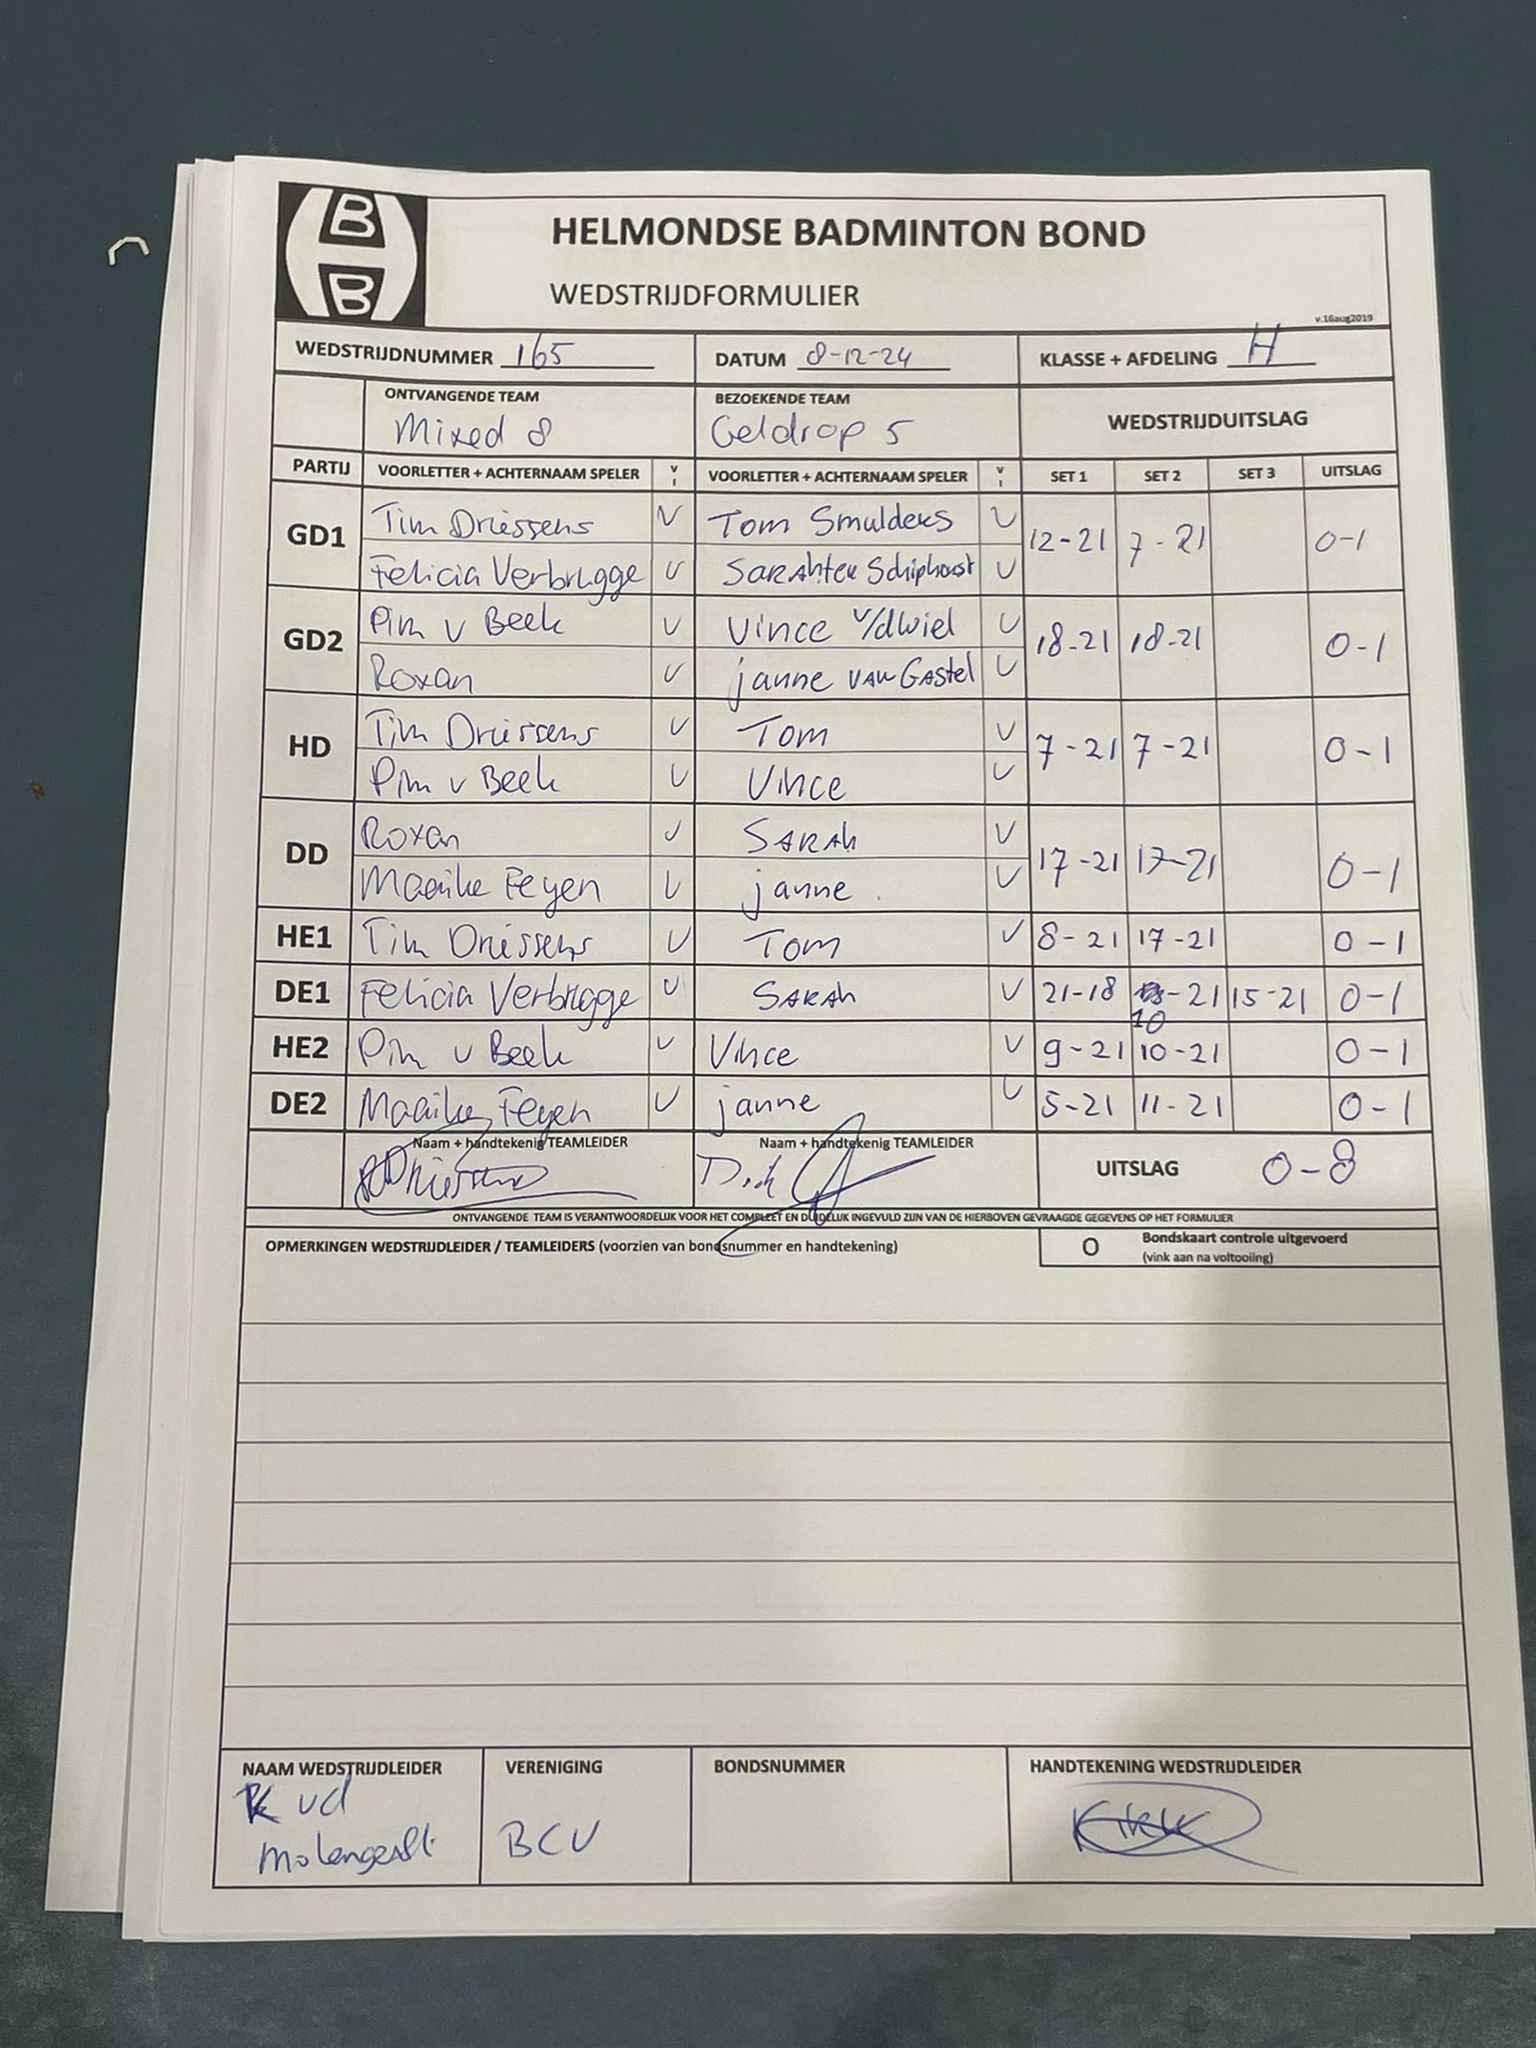 HELMONDSE BADMINTON BOND
WEDSTRIJDFORMULIER
v.16aug2019
WEDSTRIJDNUMMER 165 DATUM 8-12-24 KLASSE + AFDELING H
ONTVANGENDE TEAM BEZOEKENDE TEAM WEDSTRIJDUITSLAG
Mixed 8 Geldrop 5
PARTIJ VOORLETTER + ACHTERNAAM SPELER V I VOORLETTER + ACHTERNAAM SPELER V I SET 1 SET 2 SET 3 UITSLAG
GD1 Tim Driessens V Tom Smulders V 12-21 7-21 0-1
Felicia Verbrugge V SARAh ter Schiphorst V
GD2 Pim v Beek V Vince v/dWiel V 18-21 18-21 0-1
Roxan V janne VAN GAStel V
HD Tim Driessens V Tom V 7-21 7-21 0-1
Pim v Beek V Vince V
DD Roxan V SARAh V 17-21 17-21 0-1
Maaike Feyen V janne V
HE1 Tim Driessens V Tom V 8-21 17-21 0-1
DE1 Felicia Verbrugge V SARAh V 21-18 10-21 15-21 0-1
HE2 Pim v Beek V Vince V 9-21 10-21 0-1
DE2 Maaike Feyen V janne V 5-21 11-21 0-1
Naam + handtekenig TEAMLEIDER Naam + handtekenig TEAMLEIDER UITSLAG 0-8
Driessens
ONTVANGENDE TEAM IS VERANTWOORDELIJK VOOR HET COMPLEET EN DUIDELIJK INGEVULD ZIJN VAN DE HIERBOVEN GEVRAAGDE GEGEVENS OP HET FORMULIER
OPMERKINGEN WEDSTRIJDLEIDER / TEAMLEIDERS (voorzien van bondsnummer en handtekening) O Bondskaart controle uitgevoerd
(vink aan na voltooiing)
NAAM WEDSTRIJDLEIDER VERENIGING BONDSNUMMER HANDTEKENING WEDSTRIJDLEIDER
K vd BCV